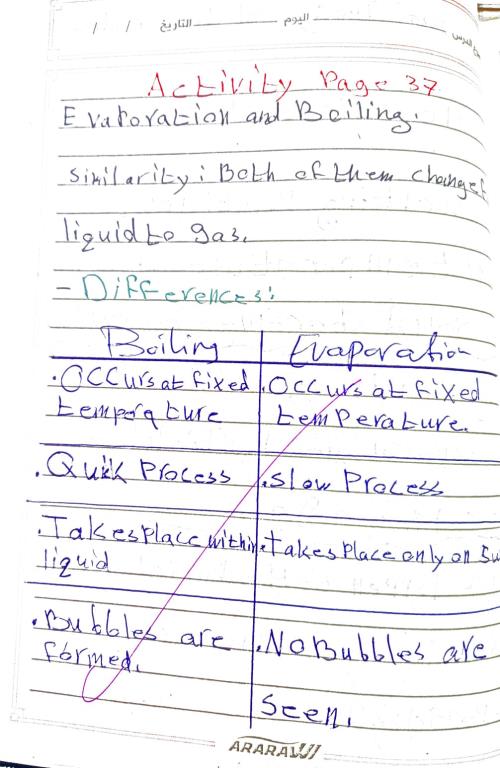 اليوم
التاريخ / /
Activity Page 37
Evaporation and Boiling.
Similarity: Both of them change
liquid to gas.
- Differences:
Boiling Evaporation
. Occurs at fixed . Occurs at fixed
temperature temperature.
. Quick Process . Slow Process
. Takes Place within . takes Place only on Su
liquid
. Bubbles are . No Bubbles are
formed. Seen.
ARARAT